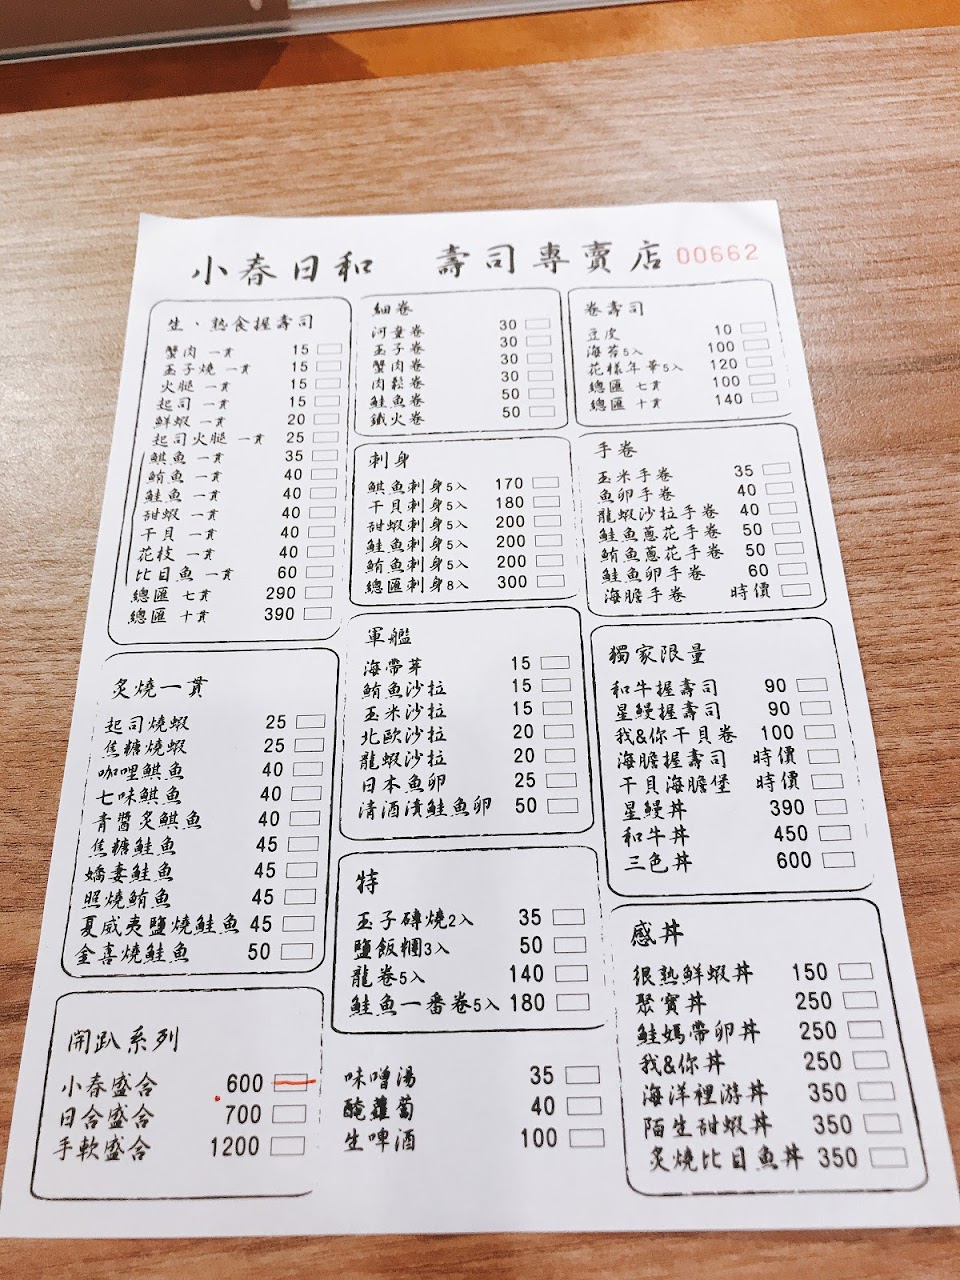 小春日和 壽司專賣店 00662
生、熟食握壽司
蟹肉 一貫 15
玉子燒 一貫 15
火腿 一貫 15
起司 一貫 15
鮮蝦 一貫 20
起司火腿 一貫 25
鯕魚 一貫 35
鮪魚 一貫 40
鮭魚 一貫 40
甜蝦 一貫 40
干貝 一貫 40
花枝 一貫 40
比目魚 一貫 60
總匯 七貫 290
總匯 十貫 390
細卷
河童卷 30
玉子卷 30
蟹肉卷 30
肉鬆卷 30
鮭魚卷 50
鐵火卷 50
卷壽司
豆皮 10
海苔5入 100
花樣年華5入 120
總匯 七貫 100
總匯 十貫 140
刺身
鯕魚刺身5入 170
干貝刺身5入 180
甜蝦刺身5入 200
鮭魚刺身5入 200
鮪魚刺身5入 200
總匯刺身8入 300
手卷
玉米手卷 35
魚卵手卷 40
龍蝦沙拉手卷 40
鮭魚蔥花手卷 50
鮪魚蔥花手卷 50
鮭魚卵手卷 60
海膽手卷 時價
炙燒一貫
起司燒蝦 25
焦糖燒蝦 25
咖哩鯕魚 40
七味鯕魚 40
青醬炙鯕魚 40
焦糖鮭魚 45
嬌妻鮭魚 45
照燒鮪魚 45
夏威夷鹽燒鮭魚 45
金喜燒鮭魚 50
軍艦
海帶芽 15
鮪魚沙拉 15
玉米沙拉 15
北歐沙拉 20
龍蝦沙拉 20
日本魚卵 25
清酒漬鮭魚卵 50
獨家限量
和牛握壽司 90
星鰻握壽司 90
我&你干貝卷 100
海膽握壽司 時價
干貝海膽堡 時價
星鰻丼 390
和牛丼 450
三色丼 600
特
玉子磚燒2入 35
鹽飯糰3入 50
龍卷5入 140
鮭魚一番卷5入 180
感丼
很熟鮮蝦丼 150
聚寶丼 250
鮭媽帶卵丼 250
我&你丼 250
海洋裡游丼 350
陌生甜蝦丼 350
炙燒比目魚丼 350
開趴系列
小春盛合 600
日合盛合 700
手軟盛合 1200
味噌湯 35
醃蘿蔔 40
生啤酒 100